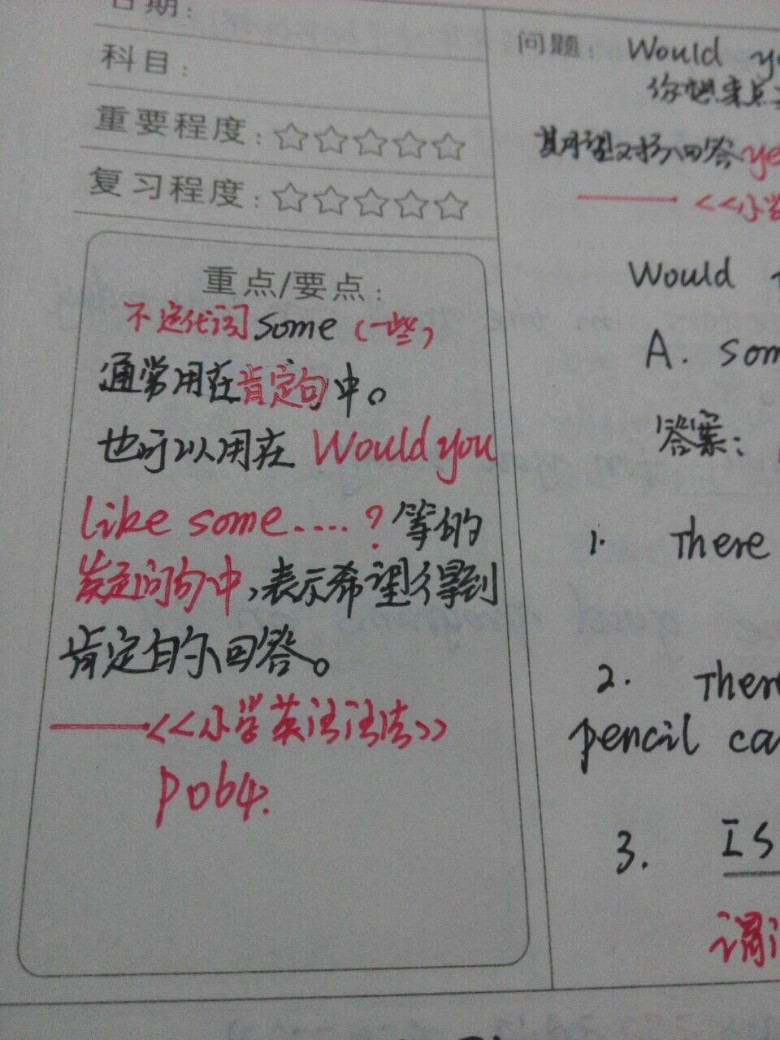 日期:
科目:
重要程度:☆☆☆☆☆
复习程度:☆☆☆☆☆
重点/要点:
不定代词some(一些)
通常用在肯定句中。
也可以用在 Would you
like some....?等的
疑问句中,表示希望得到
肯定的回答。
——<<小学英语语法>>
P064.
问题: Would
你想来点
期望对方回答
——<<小学
Would
A.
答案:
1. There
2.
pencil
3. Is